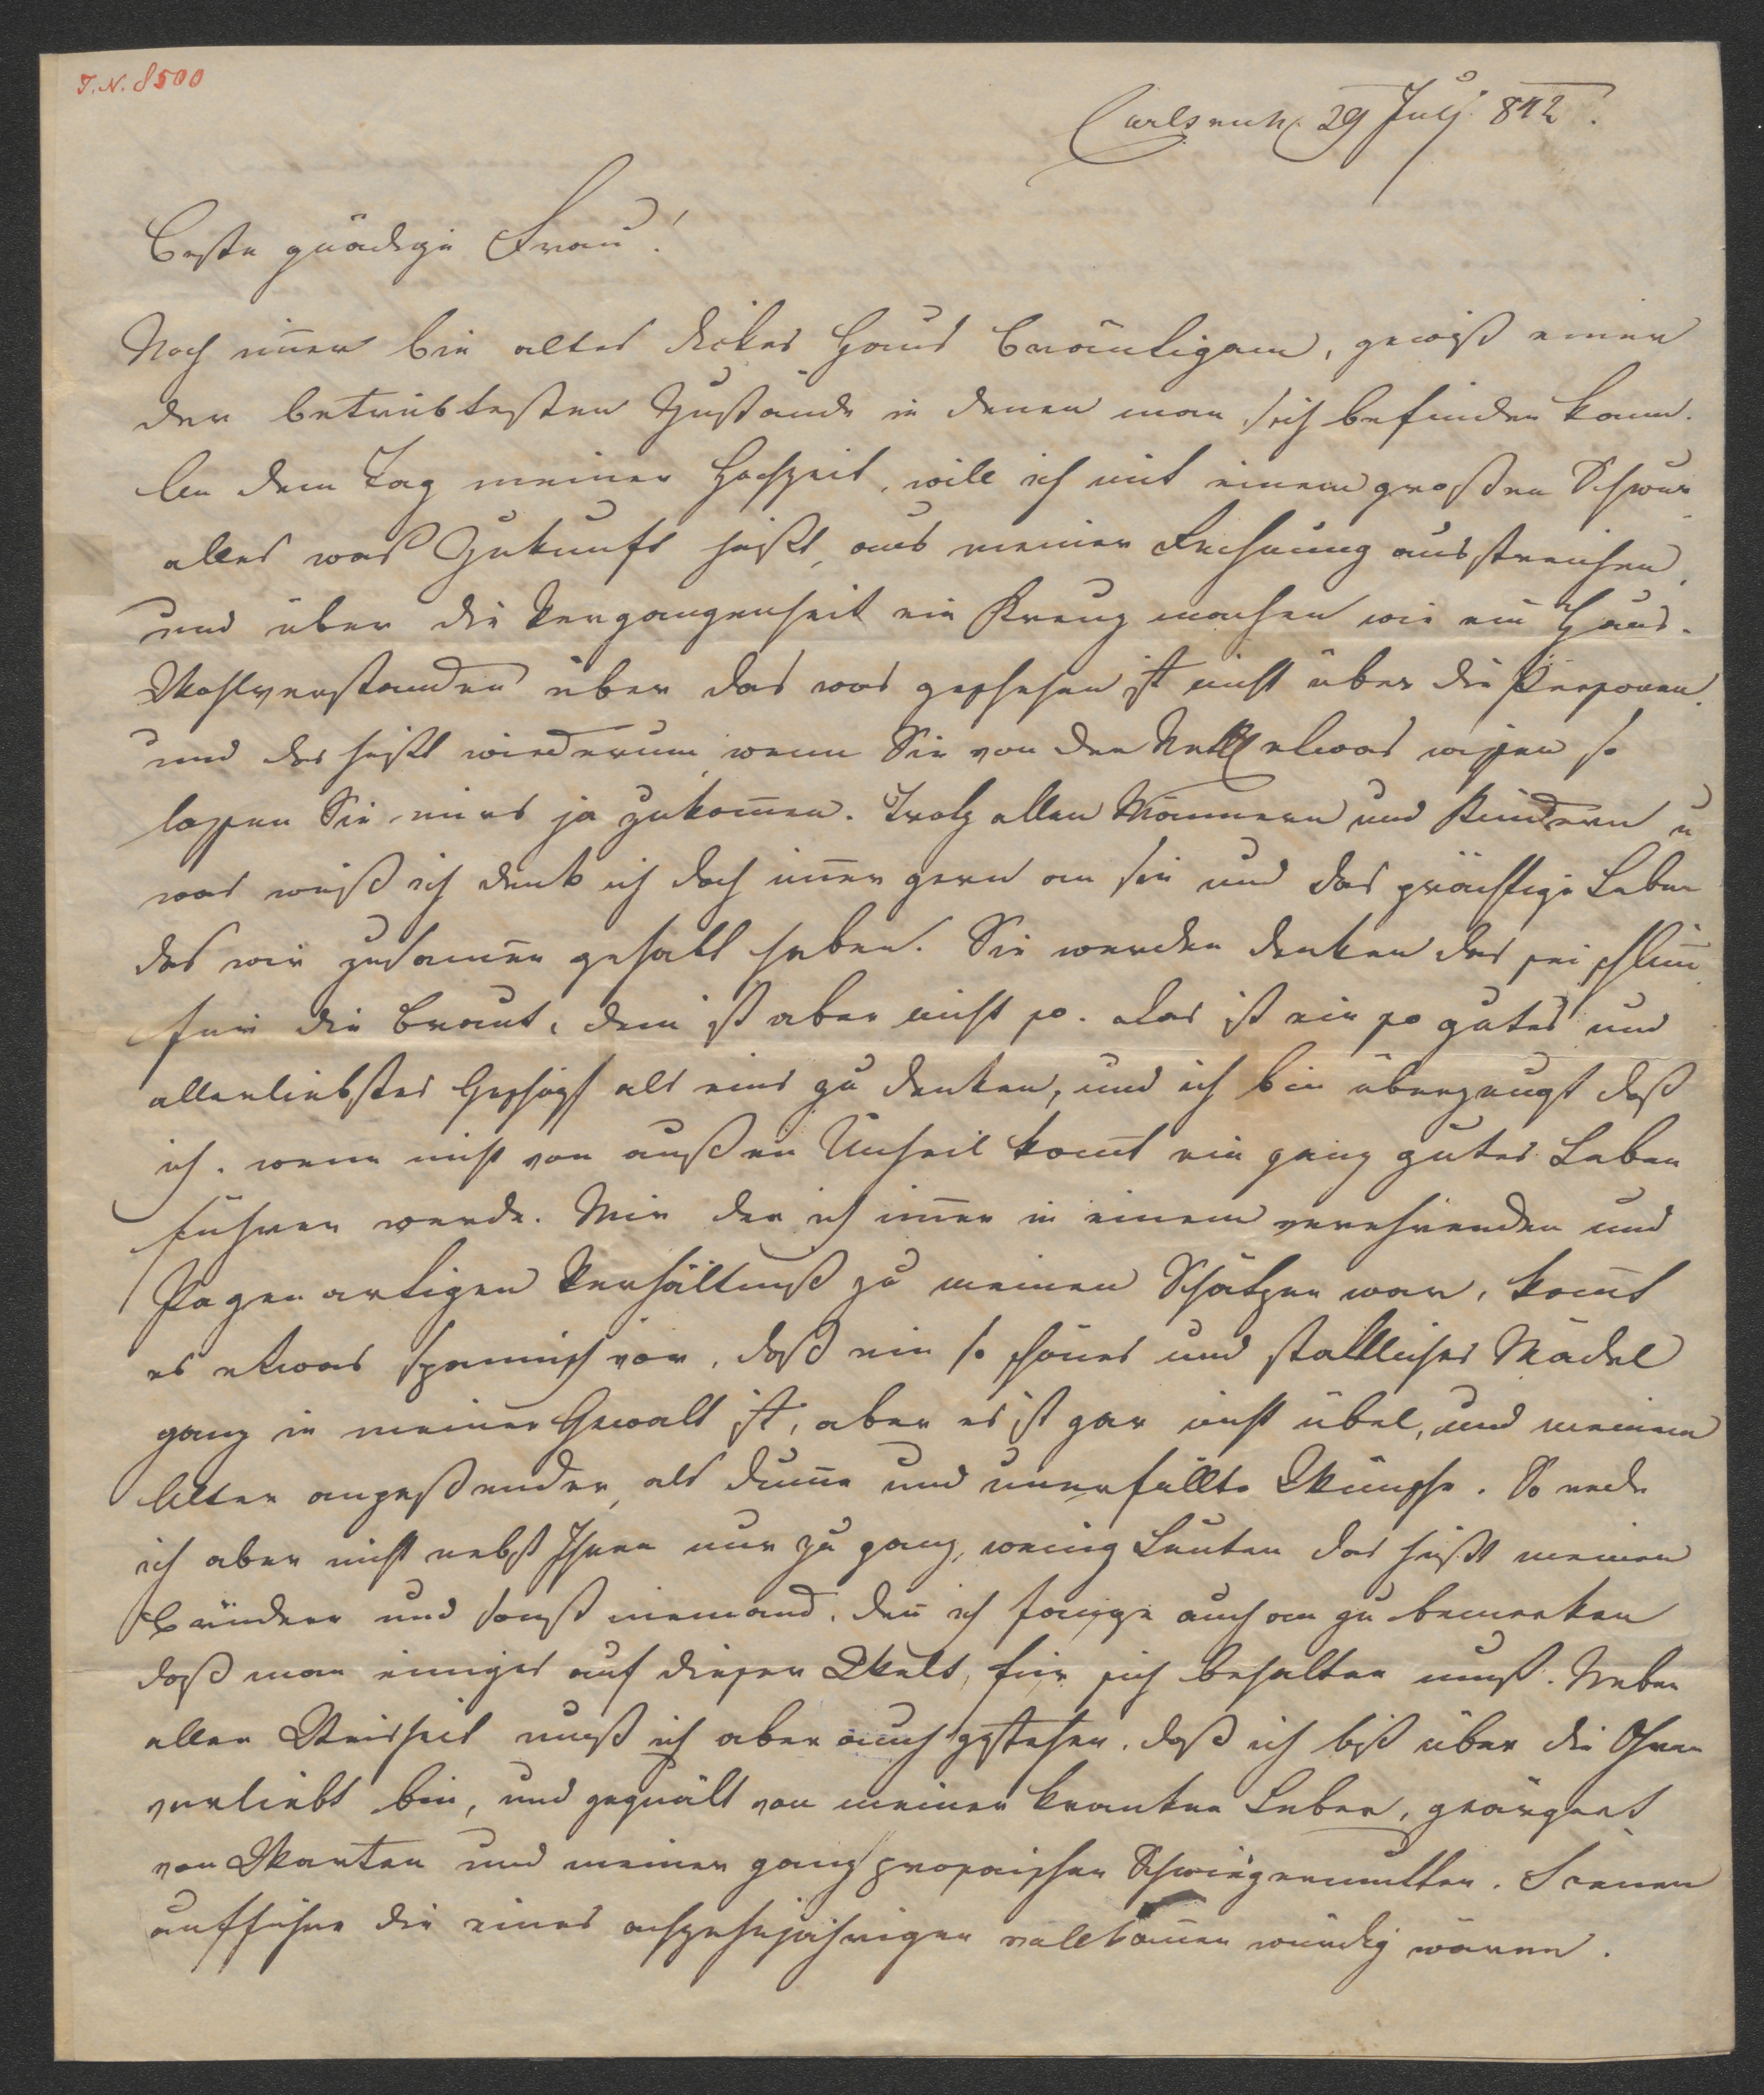 I.N. 8500
Carlsruhe 29 July 842.
Beste gnädige Frau!
Noch im̄er bin altes dickes Haus Bräutigam, gewiß einer
der betrübtesten Zustände in denen man sich befinden kann.
An dem Tag meiner Hochzeit, will ich mit einem großen Schwur
alles was Zukunft heißt, aus meiner Rechnung ausstreichen,
und über die Vergangenheit ein Kreuz machen wie ein Haus.
Wohlverstanden über das was geschehen ist nicht über die Personen.
und das heißt wiederum, wenn Sie von der Nettl etwas wissen so
lassen Sie mirs ja zukom̄en. Trotz allen Männern und Kindern u
was weiß ich denk ich doch im̄er gern an sie und das prächtige Leben
das wir zusam̄en gehabt haben. Sie werden denken das sei schlim̄
für die Braut, dem ist aber nicht so. Das ist ein so gutes und
allerliebstes Geschöpf als eins zu denken, und ich bin überzeugt daß
ich, wenn nicht von außen Unheil kom̄t ein ganz gutes Leben
führen werde. Mir der ich im̄er in einem verehrenden und
Pagen artigen Verhältniß zu meinen Schätzen war, kom̄t
es etwas spannisch vor, daß ein so schönes und stattliches Mädel
ganz in meiner Gewalt ist, aber es ist gar nicht übel, und meinem
Alter angeßender, als dum̄e und unerfüllte Wünsche. So rede
ich aber nicht nebst Ihnen nur zu ganz, wenig Leuten das heißt meinen
Brüdern und sonst niemand. den̄ ich fange auch an zu bemerken
daß man einiges auf dieser Welt, für sich behalten muß. Neben
aller Weisheit muß ich aber auch gestehen, daß ich biß über die Ohren
verliebt bin, und gequält von meiner kranken Leber, geärgert
von Warten und meiner ganz prosaischen Schwiegermutter. Scenen
aufführe die eines achzehnjährigen vollkom̄en würdig wären.